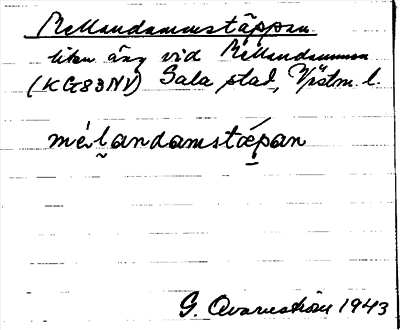 Mellandammstäppan
liten äng vid Mellandammen
(KG83NV) Sala stad, Västm. l.
mèl̬andamstǽpan
G. Qvarnström 1943